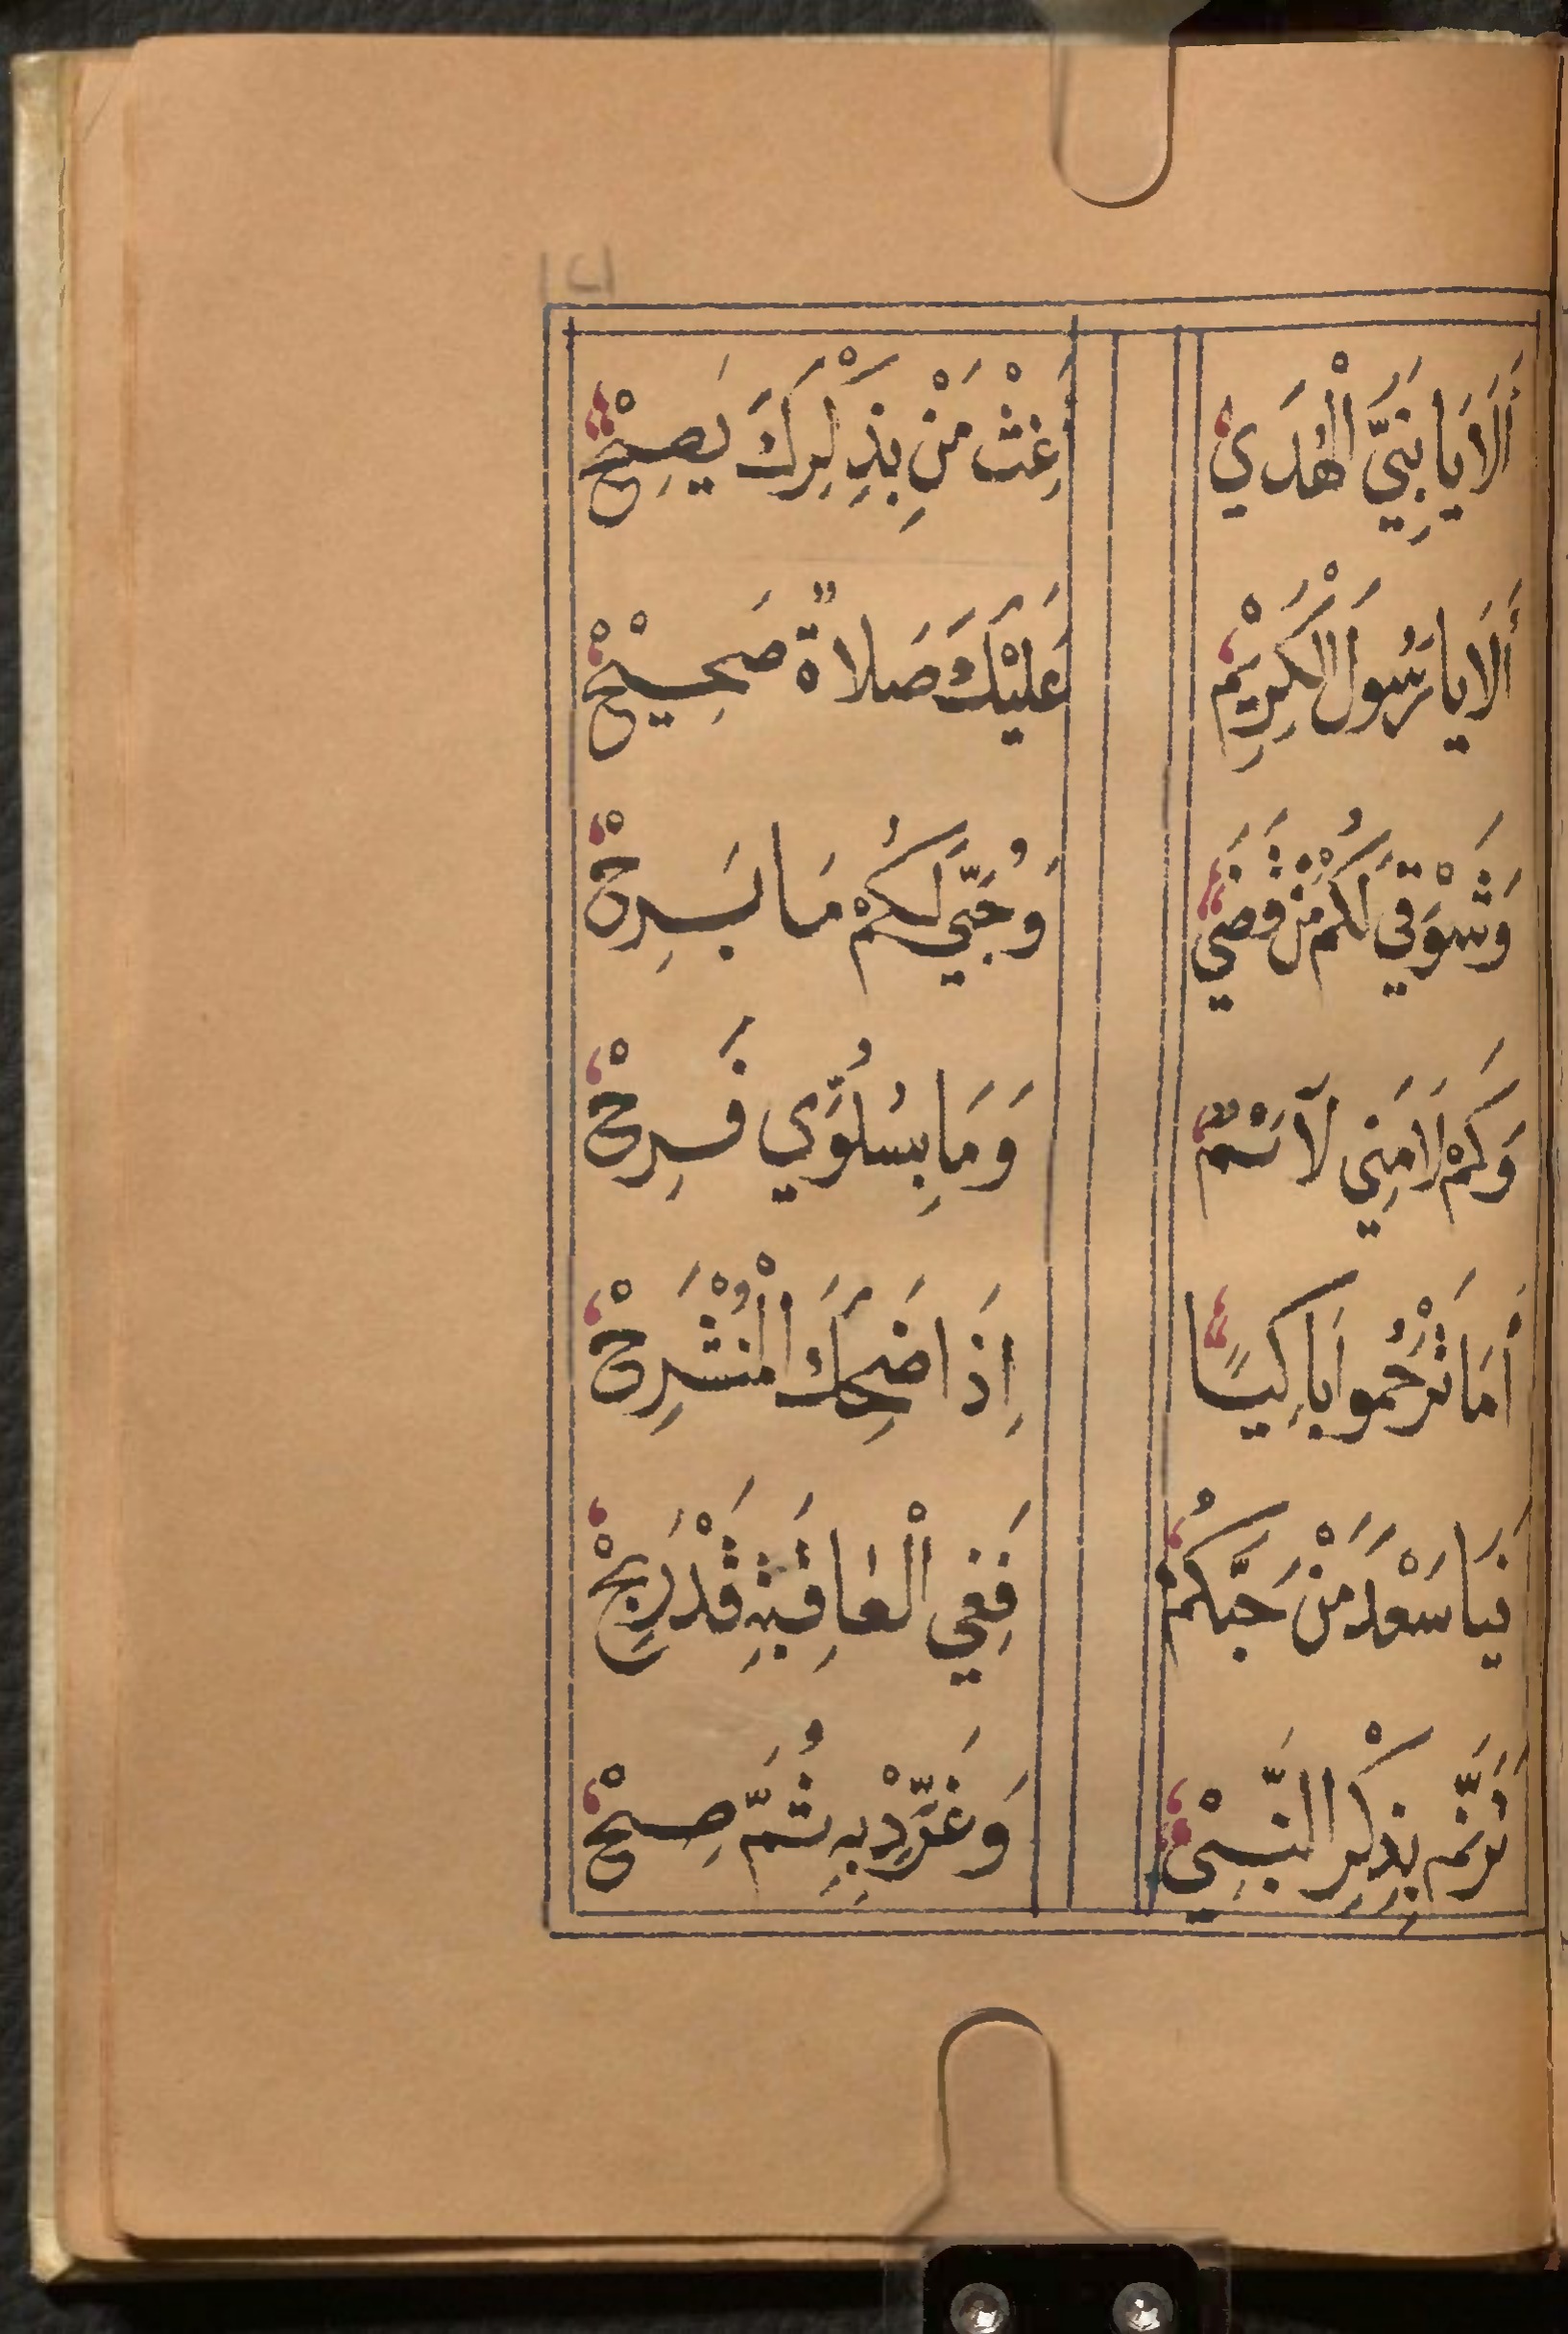 أَلَا يَا نَبِيَّ الْهُدَي اَغِثْ مَنْ بِذِكْرِكَ يَصِحْ
أَلَا يَا رَسُولَ الْكَرِيْم عَلَيْكَ صَلَاةً صَحِيْحْ
وَشَوْقِي لَكُمْ مَنْ قَضَي وَحُبِّي لَكُمْ مَا بَسِرِحْ
وَكَمْ لَامَنِي لَآئِمٌ وَمَا بِسُلُوِّي فَسِرِحْ
أَمَا تَرْحَمُوا بَاكِيًا اِذَا ضَحِكَ الْمُنْشَرِحْ
فَيَا سَعْدَ مَنْ حَبَّكُمْ فَفِي الْعَاقِبَةِ قَدْ رَبِحْ
تَرَنَّم بِذِكْرِ النَّبِيْ وَغَرِّدْ بِهِ ثُمَّ صِحْ